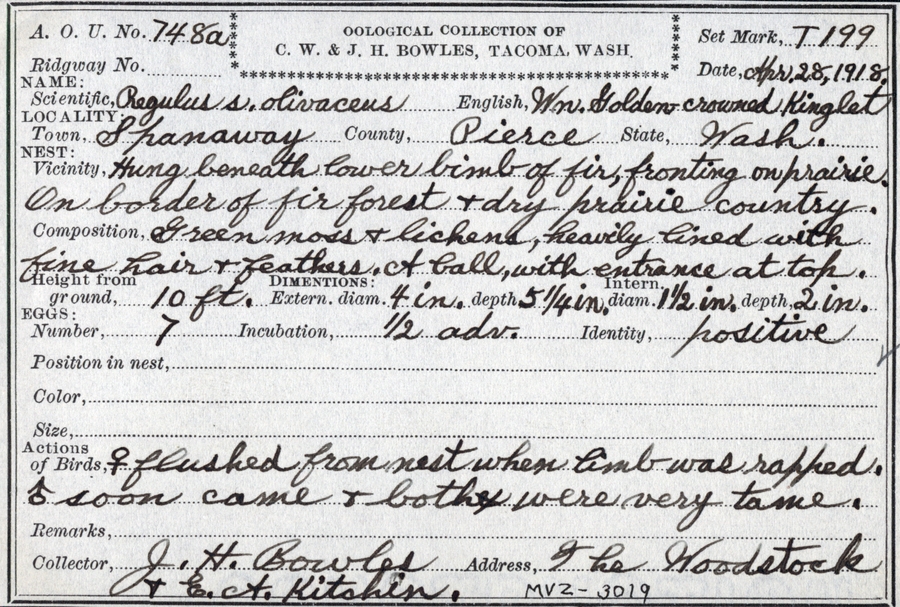 A. O. U. No. 748a
OOLOGICAL COLLECTION OF
C. W. & J. H. BOWLES, TACOMA, WASH.
Set Mark, T 199
Ridgway No.
Date, Apr. 28, 1918.
NAME:
Scientific, Regulus s. olivaceus English, Wn. Golden-crowned Kinglet
LOCALITY:
Town, Spanaway County, Pierce State, Wash.
NEST:
Vicinity, Hung beneath lower limb of fir, fronting on prairie.
On border of fir forest & dry prairie country.
Composition, Green moss & lichens, heavily lined with
fine hair & feathers. A ball, with entrance at top.
Height from ground, 10 ft. DIMENTIONS: Extern. diam. 4 in. depth 5 1/4 in. Intern. diam. 1 1/2 in. depth, 2 in.
EGGS:
Number, 7 Incubation, 1/2 adv. Identity, positive
Position in nest,
Color,
Size,
Actions of Birds, ♀ flushed from nest when limb was rapped.
♂ soon came & both were very tame.
Remarks,
Collector, J. H. Bowles Address, The Woodstock
& E. A. Kitchin.
MVZ-3019